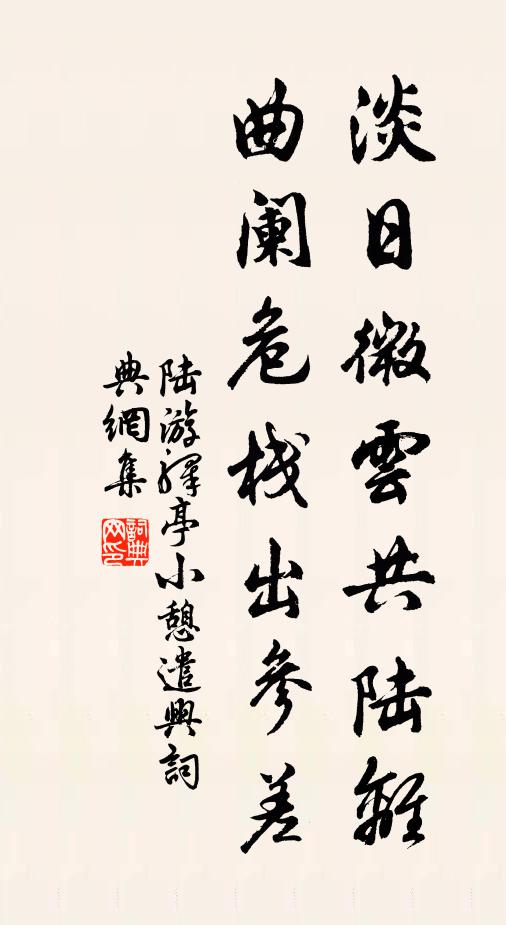 淡日微雲共陆離
曲阑危栈出參差
陆游驛亭小憩遣興詞
典網集
詞典網印